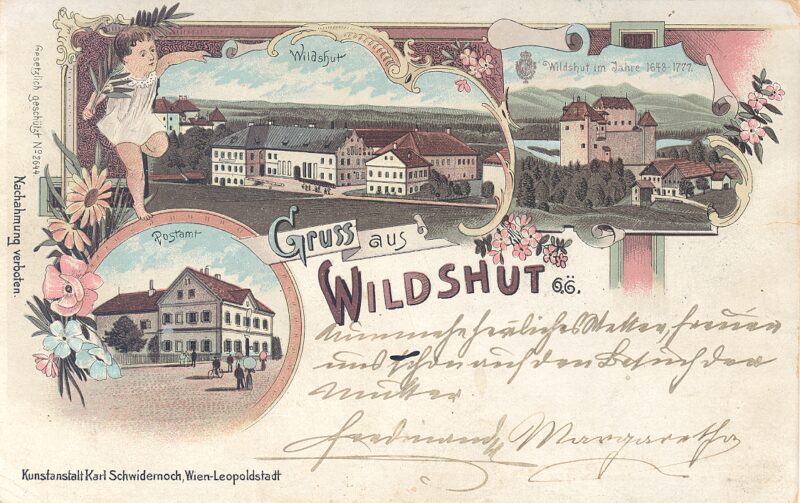 Wildshut
Wildshut im Jahre 1648-1777.
Gesetzlich geschützt No 2644.
Nachahmung verboten.
Postamt
Gruss aus
WILDSHUT O.Ö.
Nunmehr herrliches Wetter, freuen
uns schon auf den Besuch der
Mutter
Ferdinand, Margaretha
Kunstanstalt Karl Schwidernoch, Wien-Leopoldstadt